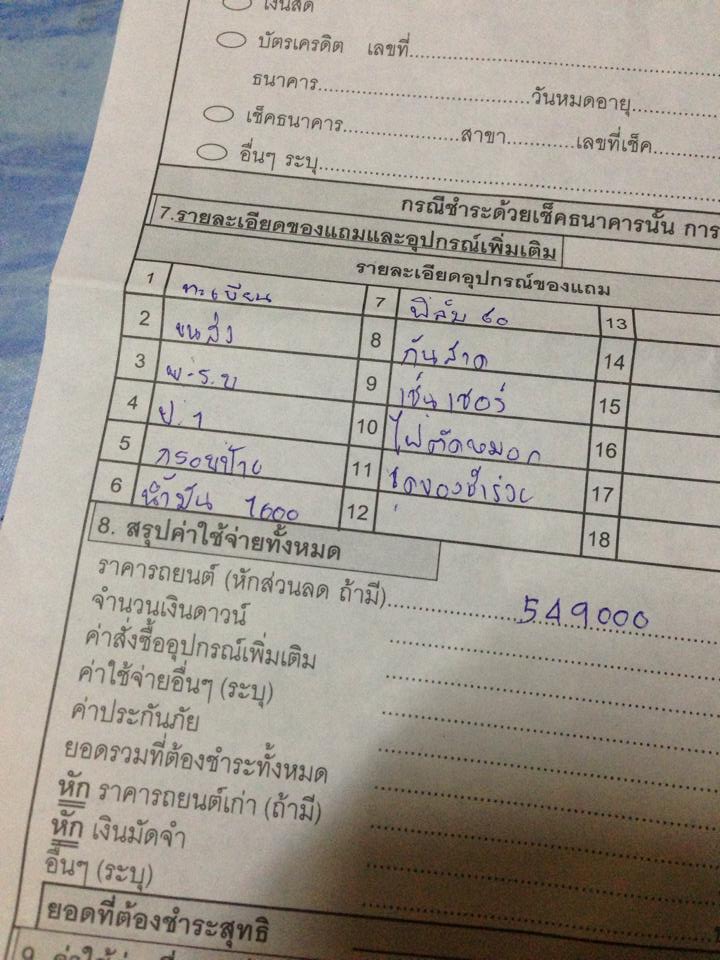 เงินสด
บัตรเครดิต เลขที่
ธนาคาร วันหมดอายุ
เช็คธนาคาร สาขา เลขที่เช็ค
อื่นๆ ระบุ
กรณีชำระด้วยเช็คธนาคารนั้น การ
7.รายละเอียดของแถมและอุปกรณ์เพิ่มเติม
รายละเอียดอุปกรณ์ของแถม
1 ทะเบียน 7 ฟิล์ม 60 13
2 ขนส่ง 8 กันสาด 14
3 พ.ร.บ 9 เซ็นเซอร์ 15
4 ป.1 10 ไฟตัดหมอก 16
5 กรอบป้าย 11 17
6 น้ำมัน 1000 12 18
8. สรุปค่าใช้จ่ายทั้งหมด
ราคารถยนต์ (หักส่วนลด ถ้ามี) 549000
จำนวนเงินดาวน์
ค่าสั่งซื้ออุปกรณ์เพิ่มเติม
ค่าใช้จ่ายอื่นๆ (ระบุ)
ค่าประกันภัย
ยอดรวมที่ต้องชำระทั้งหมด
หัก ราคารถยนต์เก่า (ถ้ามี)
หัก เงินมัดจำ
อื่นๆ (ระบุ)
ยอดที่ต้องชำระสุทธิ